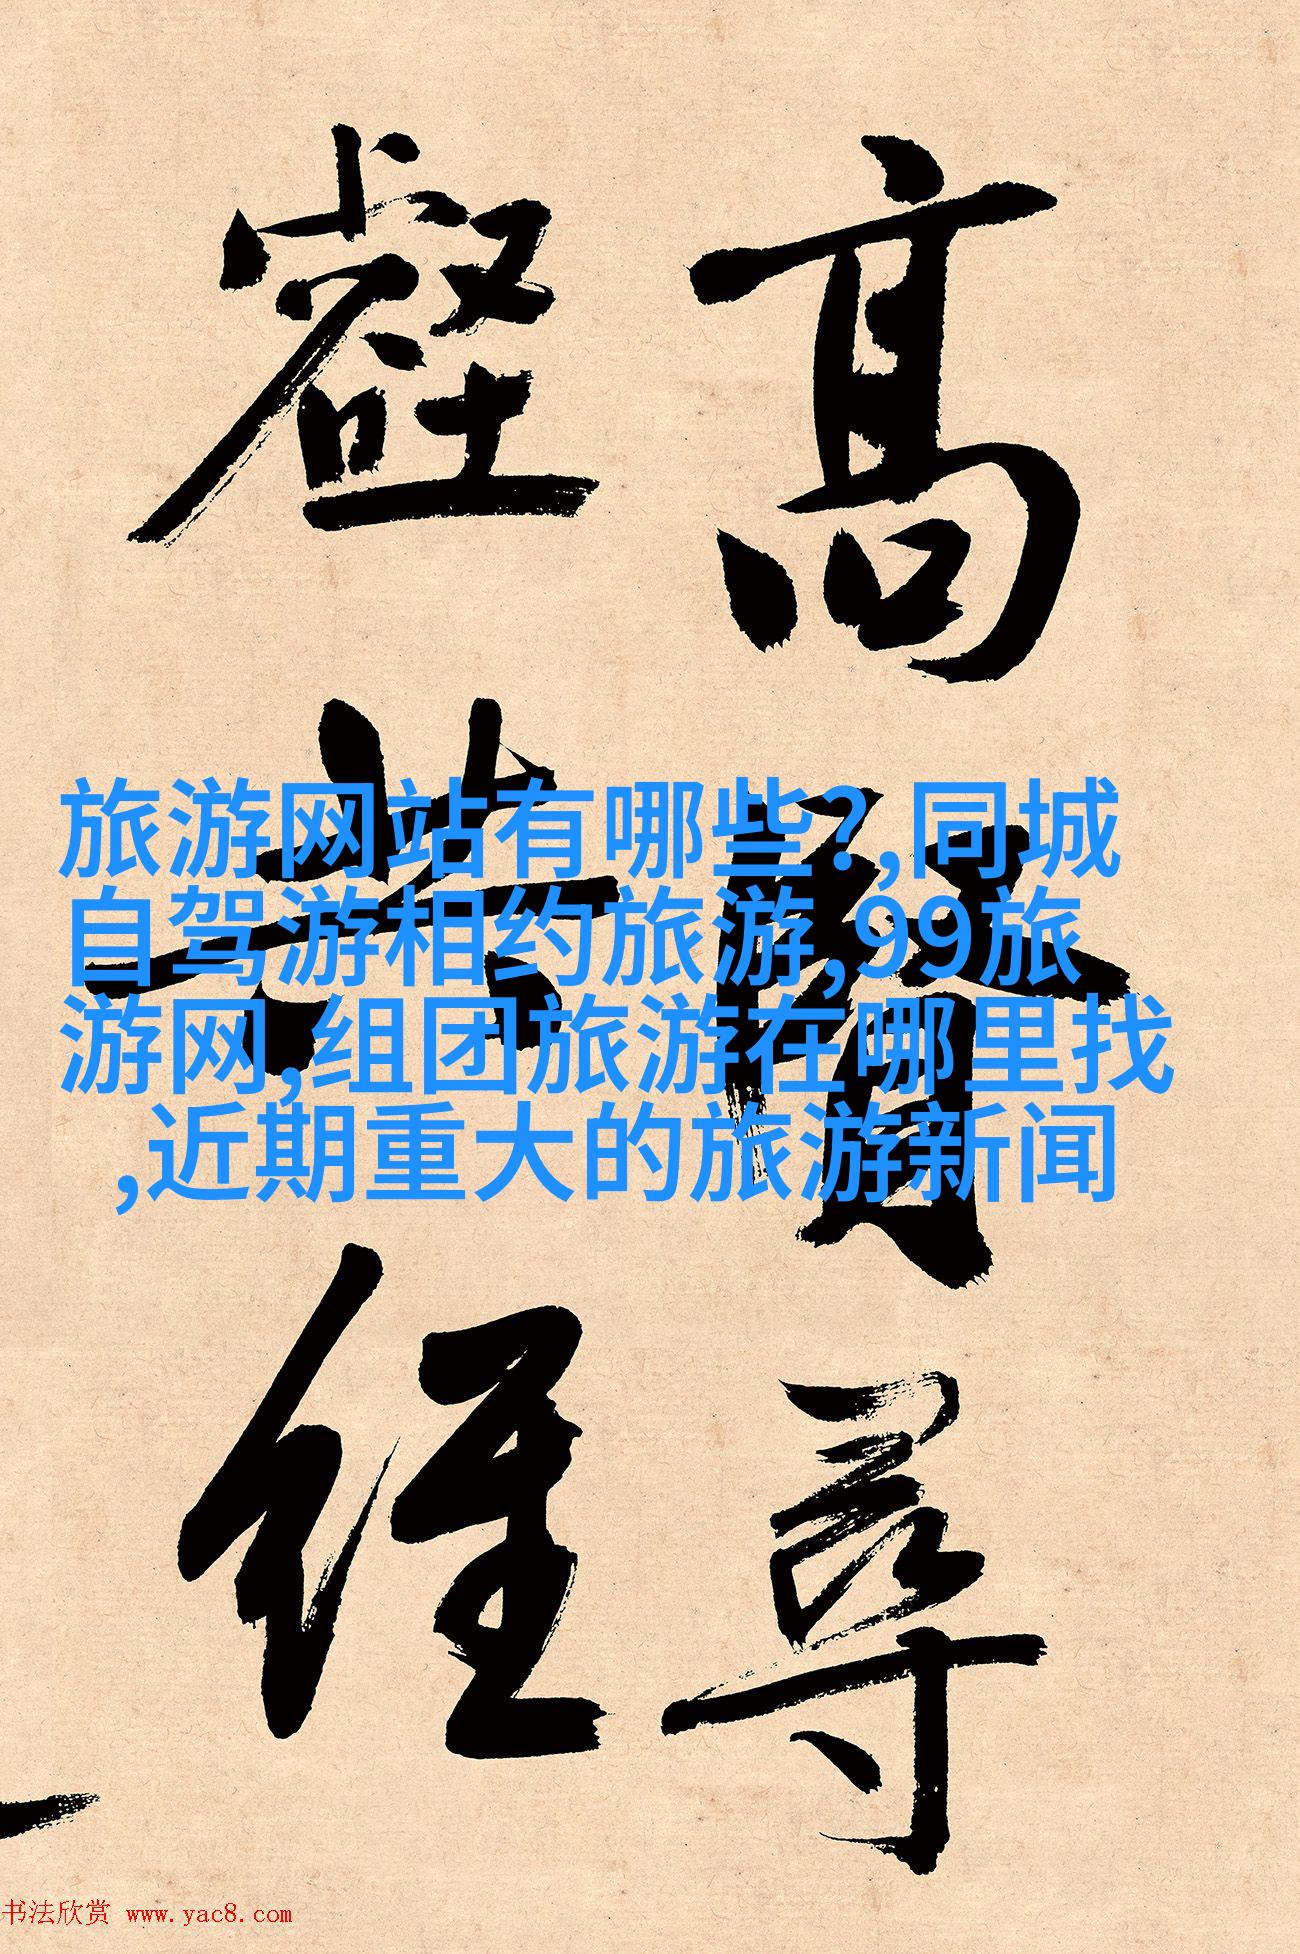 高賢尋
壑共經
旅游网站有哪些?,同城
自驾游相约旅游,99旅
游网,组团旅游在哪里找
,近期重大的旅游新闻
书法欣赏 www.yac8.com